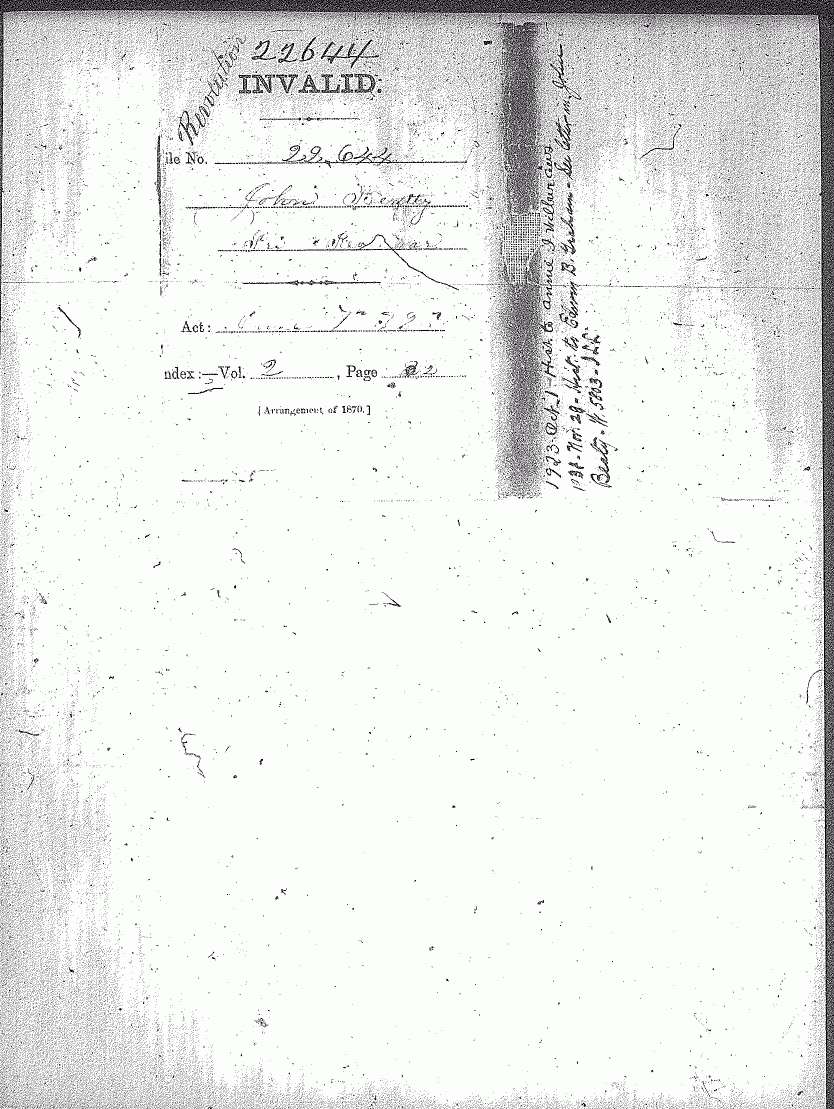 Revolution
22644
INVALID:
ile No. 22,644
John Beatty
Pri Rev War
Act: June 7" 
ndex:—Vol. 2, Page 22
[Arrangement of 1870.]
1923 Oct. 1 - Hist to Annie I
Nov. 29 - Hist. to B. Graham - See letter in John
Beaty - W. 5803 -